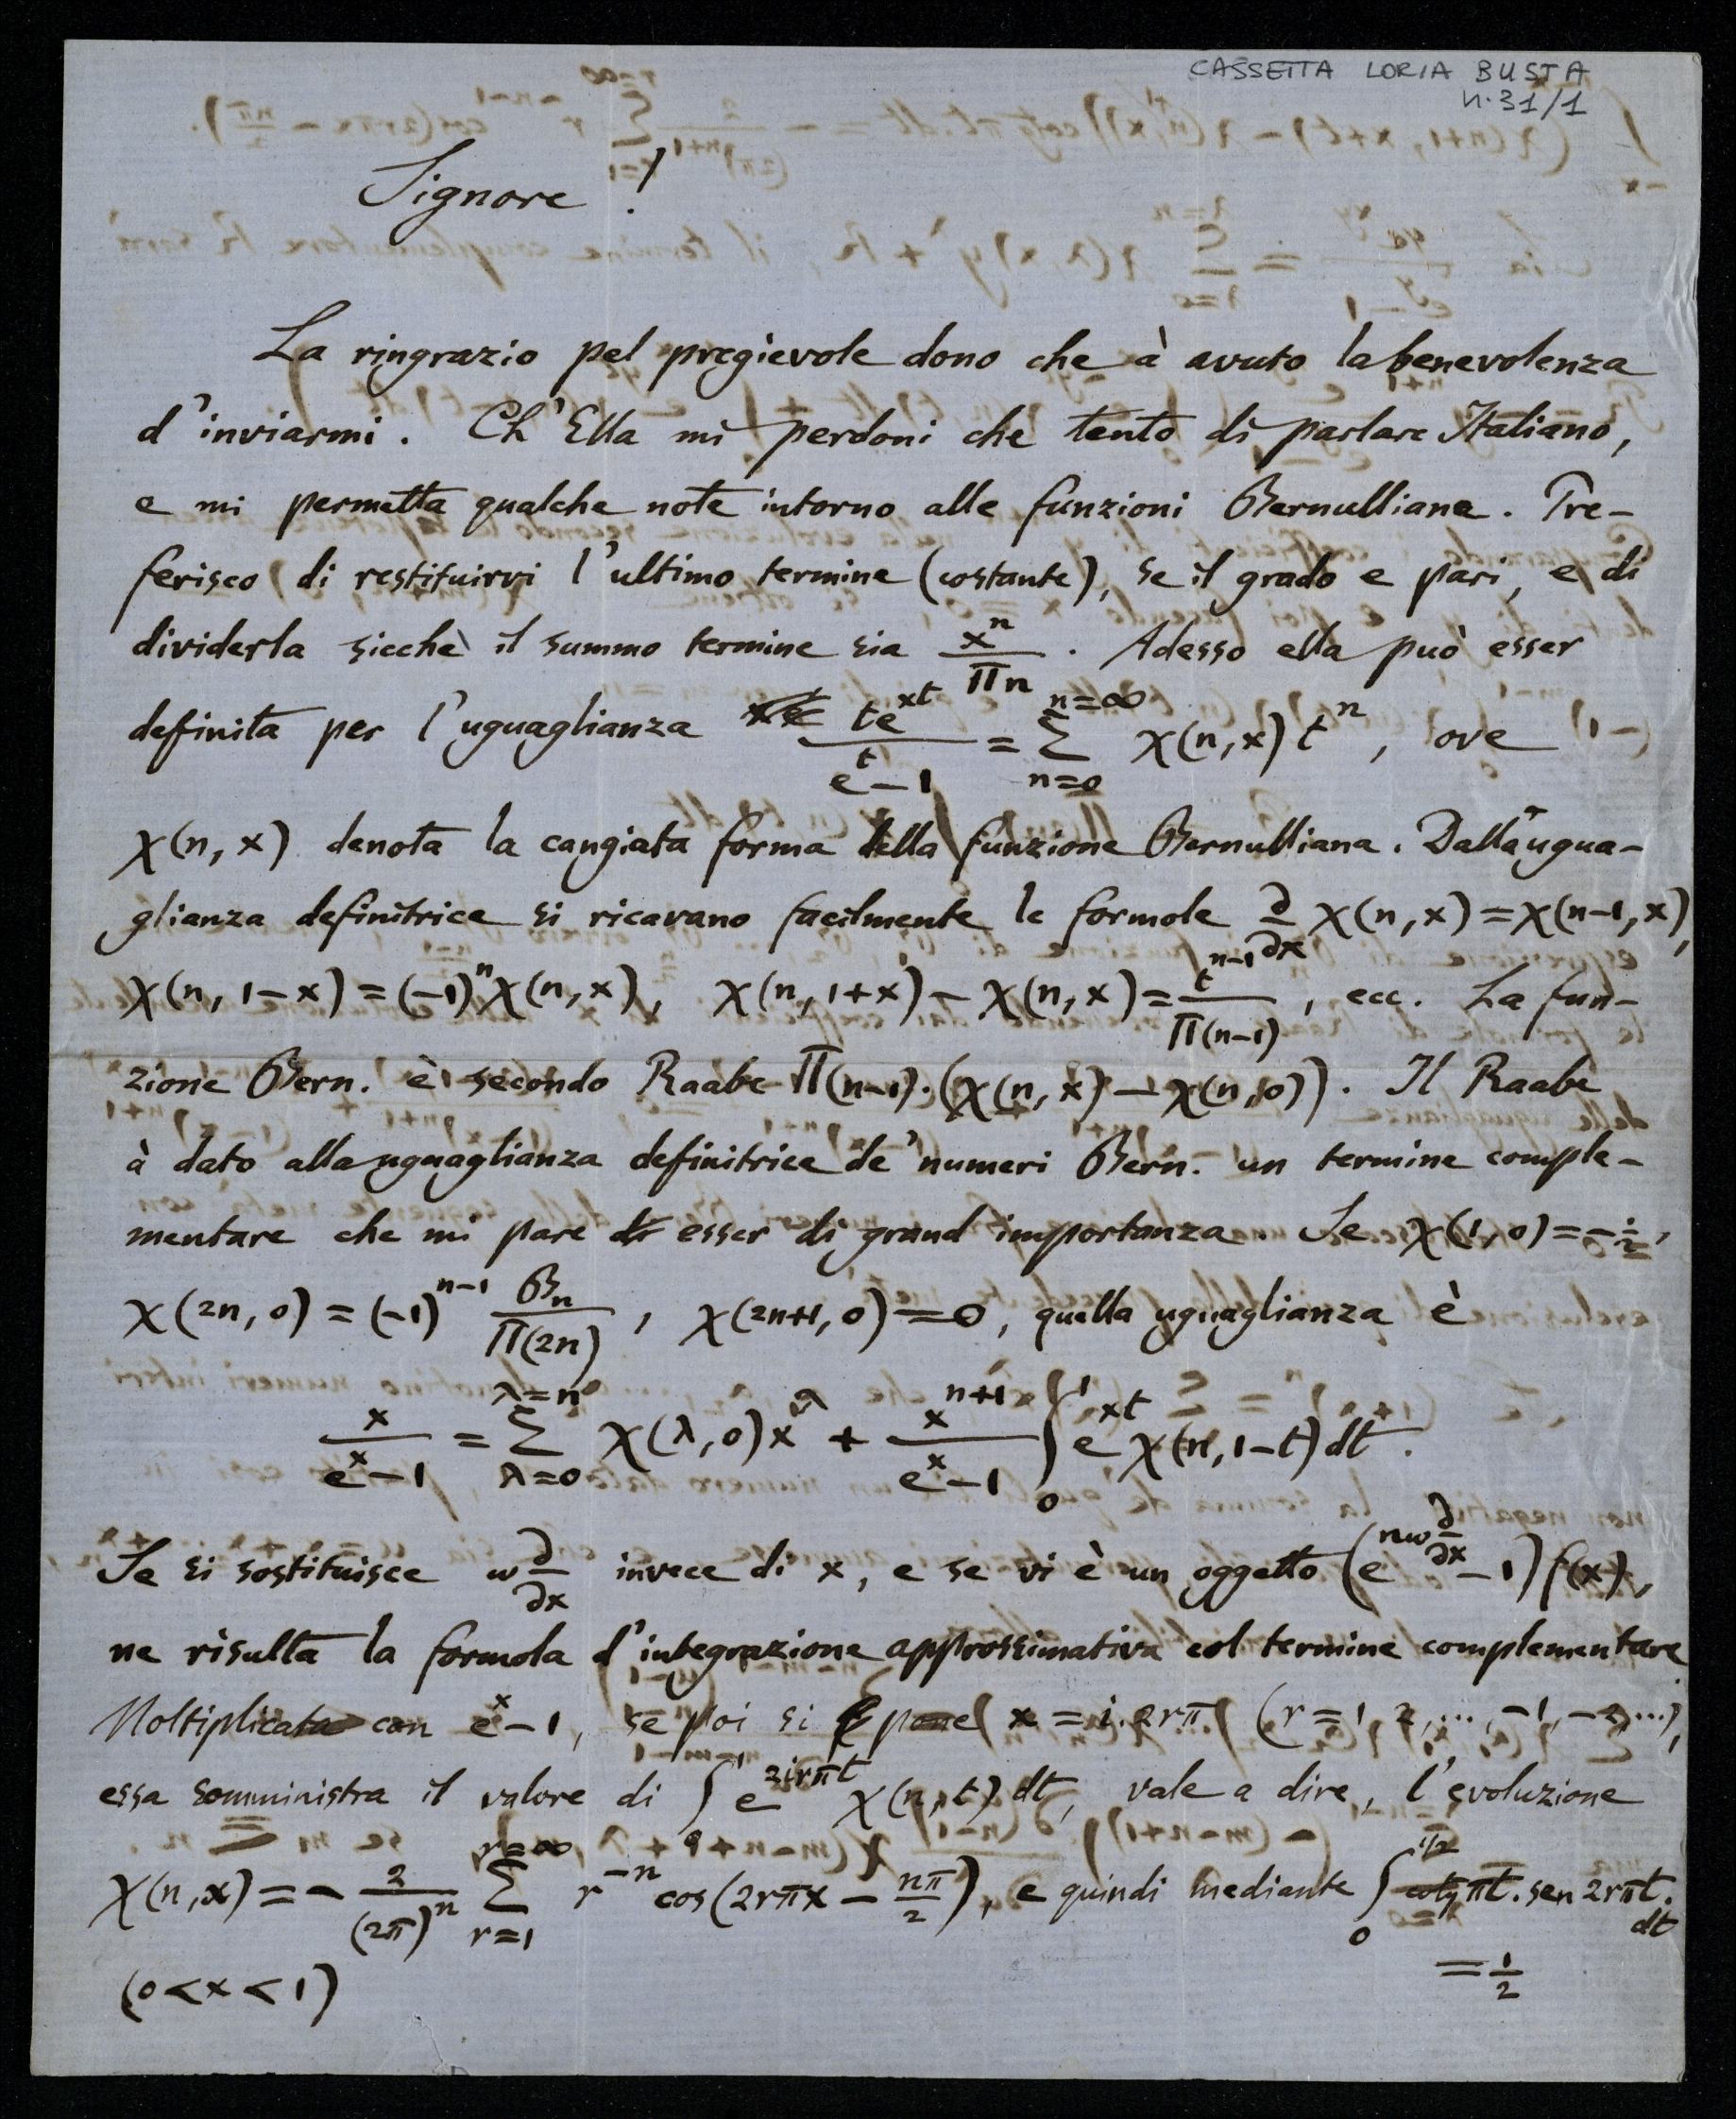 CASSETTA LORIA BUSTA
N. 31/1
Signore !
La ringrazio pel pregievole dono che à avuto la benevolenza
d'inviarmi. Ch'Ella mi perdoni che tento di parlare Italiano,
e mi permetta qualche note intorno alle funzioni Bernulliane. Pre-
ferisco di restituirvi l'ultimo termine (costante), se il grado e pari, e di
dividerla sicchè il summo termine sia x^n/Πn. Adesso ella può esser
definita per l'uguaglianza te^{xt}/(e^t−1) = Σ_{n=0}^{n=∞} χ(n,x) t^n, ove
χ(n, x) denota la cangiata forma della funzione Bernulliana. Dalla ugua-
glianza definitrice si ricavano facilmente le formole ∂/∂x χ(n,x) = χ(n−1,x),
χ(n, 1−x) = (−1)^n χ(n,x), χ(n, 1+x) − χ(n,x) = t^{n−1}/Π(n−1), ecc. La fun-
zione Bern. è secondo Raabe Π(n−1).(χ(n,x) − χ(n,0)). Il Raabe
à dato alla uguaglianza definitrice de' numeri Bern. un termine comple-
mentare che mi pare esser di grand importanza. Se χ(1,0) = −1/2,
χ(2n,0) = (−1)^{n−1} B_n/Π(2n), χ(2n+1,0) = 0, quella uguaglianza è
x/(e^x−1) = Σ_{λ=0}^{λ=n} χ(λ,0)x^λ + x^{n+1}/(e^x−1) ∫_0^1 e^{xt} χ(n,1−t) dt.
Se si sostituisce ω ∂/∂x invece di x, e se vi è un oggetto (e^{nω ∂/∂x} − 1) f(x),
ne risulta la formola d'integrazione approssimativa col termine complementare
Moltiplicata con e^x−1, se poi si pone x = i.2rπ (r = 1, 2, ..., −1, −2, ...),
essa somministra il valore di ∫^1 e^{2irπt} χ(n,t) dt, vale a dire, l'evoluzione
χ(n,x) = − 2/(2π)^n Σ_{r=1}^{r=∞} r^{−n} cos(2rπx − nπ/2), e quindi mediante ∫_0^{1/2} cotg πt . sen 2rπt . dt
(0 < x < 1) = 1/2